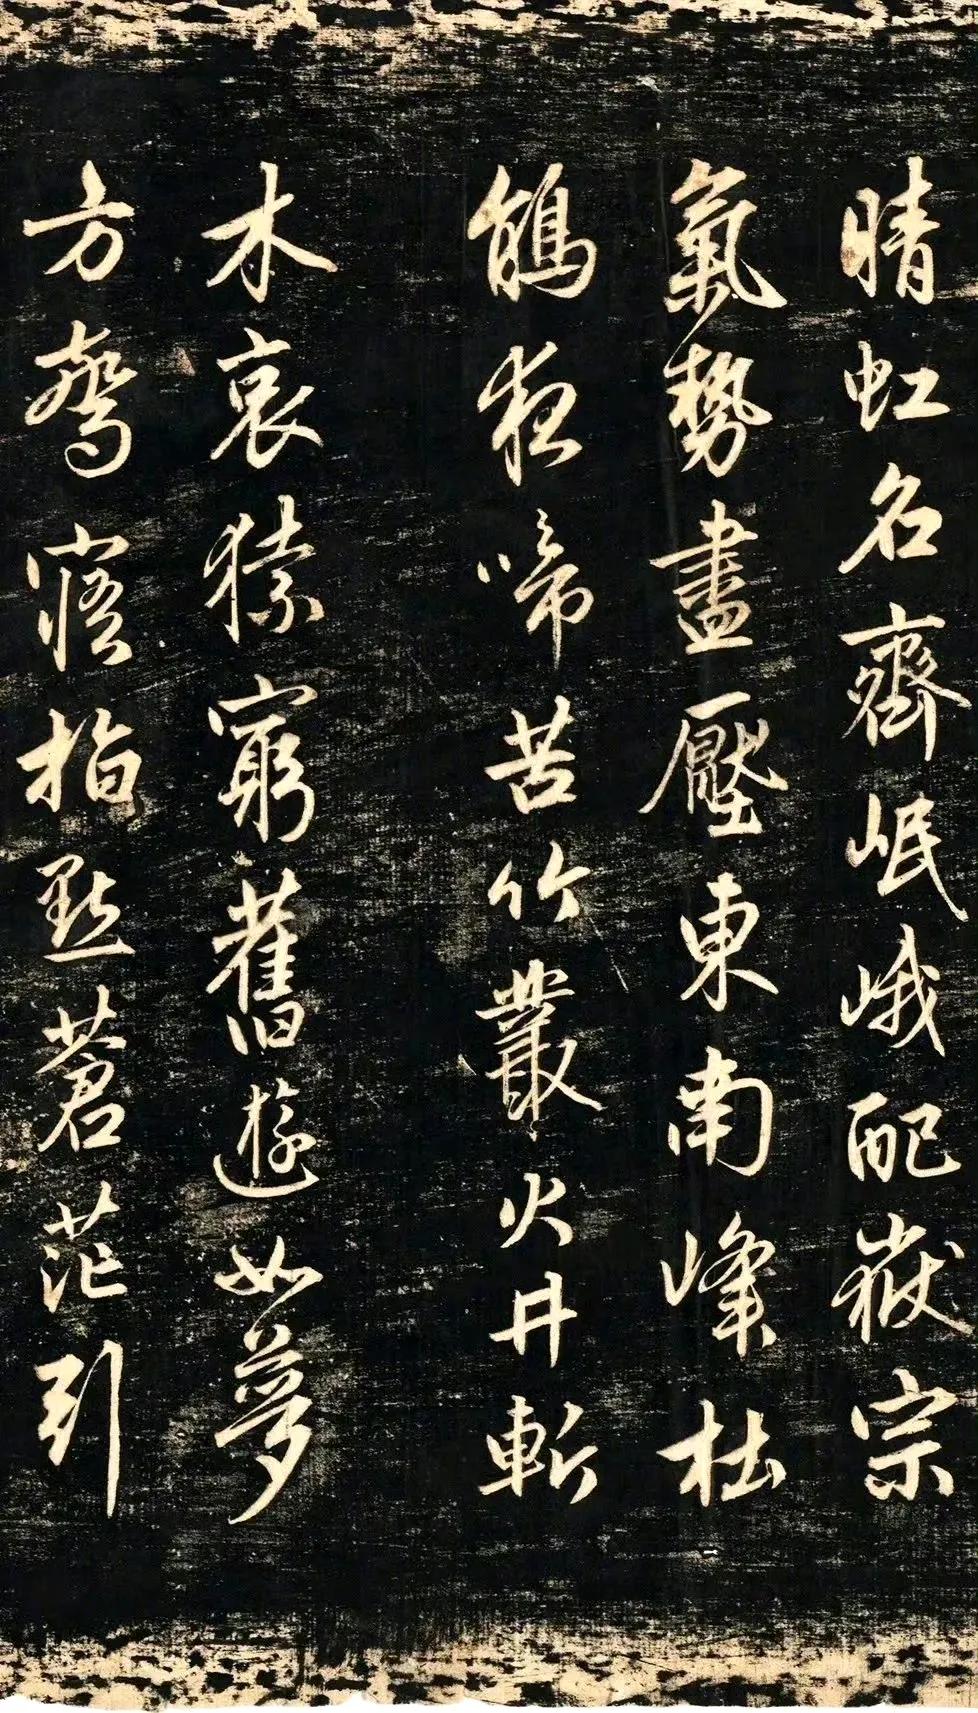 晴虹名齊岷峨配嶽宗
氣勢盡壓東南峰杜
鵑夜啼苦竹叢火井斬
木哀猿窮舊遊如夢
方驚寤指點蒼茫引